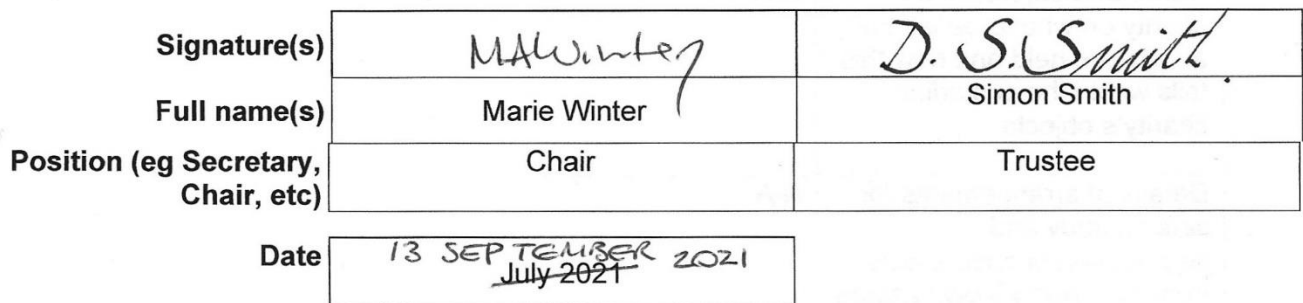 Signature(s) MAWinter D. S. Smith
Full name(s) Marie Winter Simon Smith
Position (eg Secretary, Chair Trustee
Chair, etc)
Date 13 SEPTEMBER 2021
July 2021